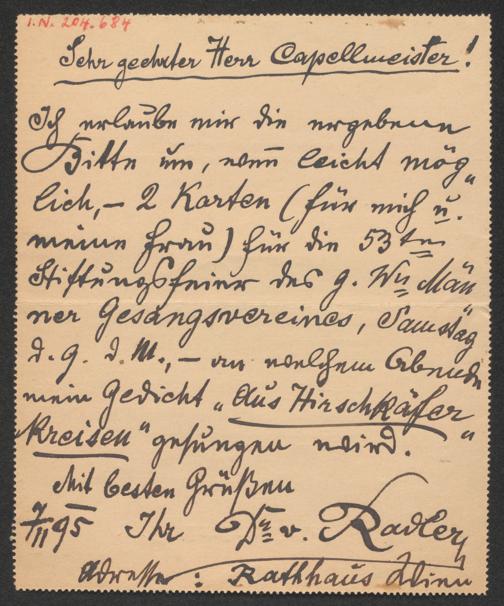 I.N. 204.684
Sehr geehrter Herr Capellmeister!
Ich erlaube mir die ergebene
Bitte um, wenn leicht mög„
lich, – 2 Karten (für mich u.
meine Frau) für die 53ten
Stiftungsfeier des g. Wr Män„
ner Gesangsvereines, Samstag
d. 9. d. M., – an welchem Abende
mein Gedicht „Aus Hirschkäfer„
kreisen“ gesungen wird.
Mit besten Grüßen
7/II 95 Ihr Dr v. Radler
Adresse: Rathhaus Wien